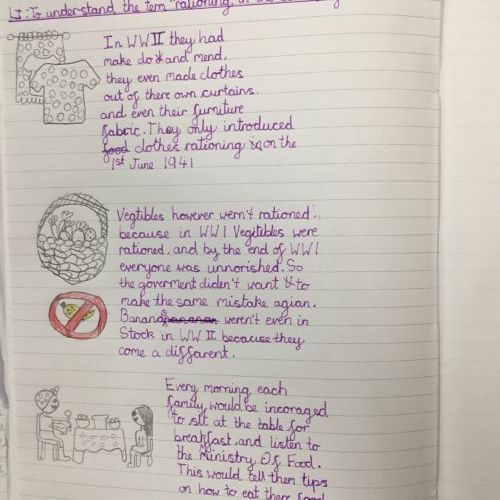 LI: To understand the term "rationing"
In WWII they had
make do and mend,
they even made clothes
out of there own curtains.
and even their furniture
fabric. They only introduced
food clothes rationing on the
1st June 1941
Vegtibles however wern't rationed,
because in WW1 Vegitibles were
rationed. and by the end of WW1
everyone was unnorished. So
the goverment diden't want to
make the same mistake agian.
Bananas bananan weren't even in
Stock in WWII because they
come a different.
Every morning, each
family would be incoraged
to sit at the table for
breakfast and listen to
the Ministry Of Food.
This would tell them tips
on how to eat there food